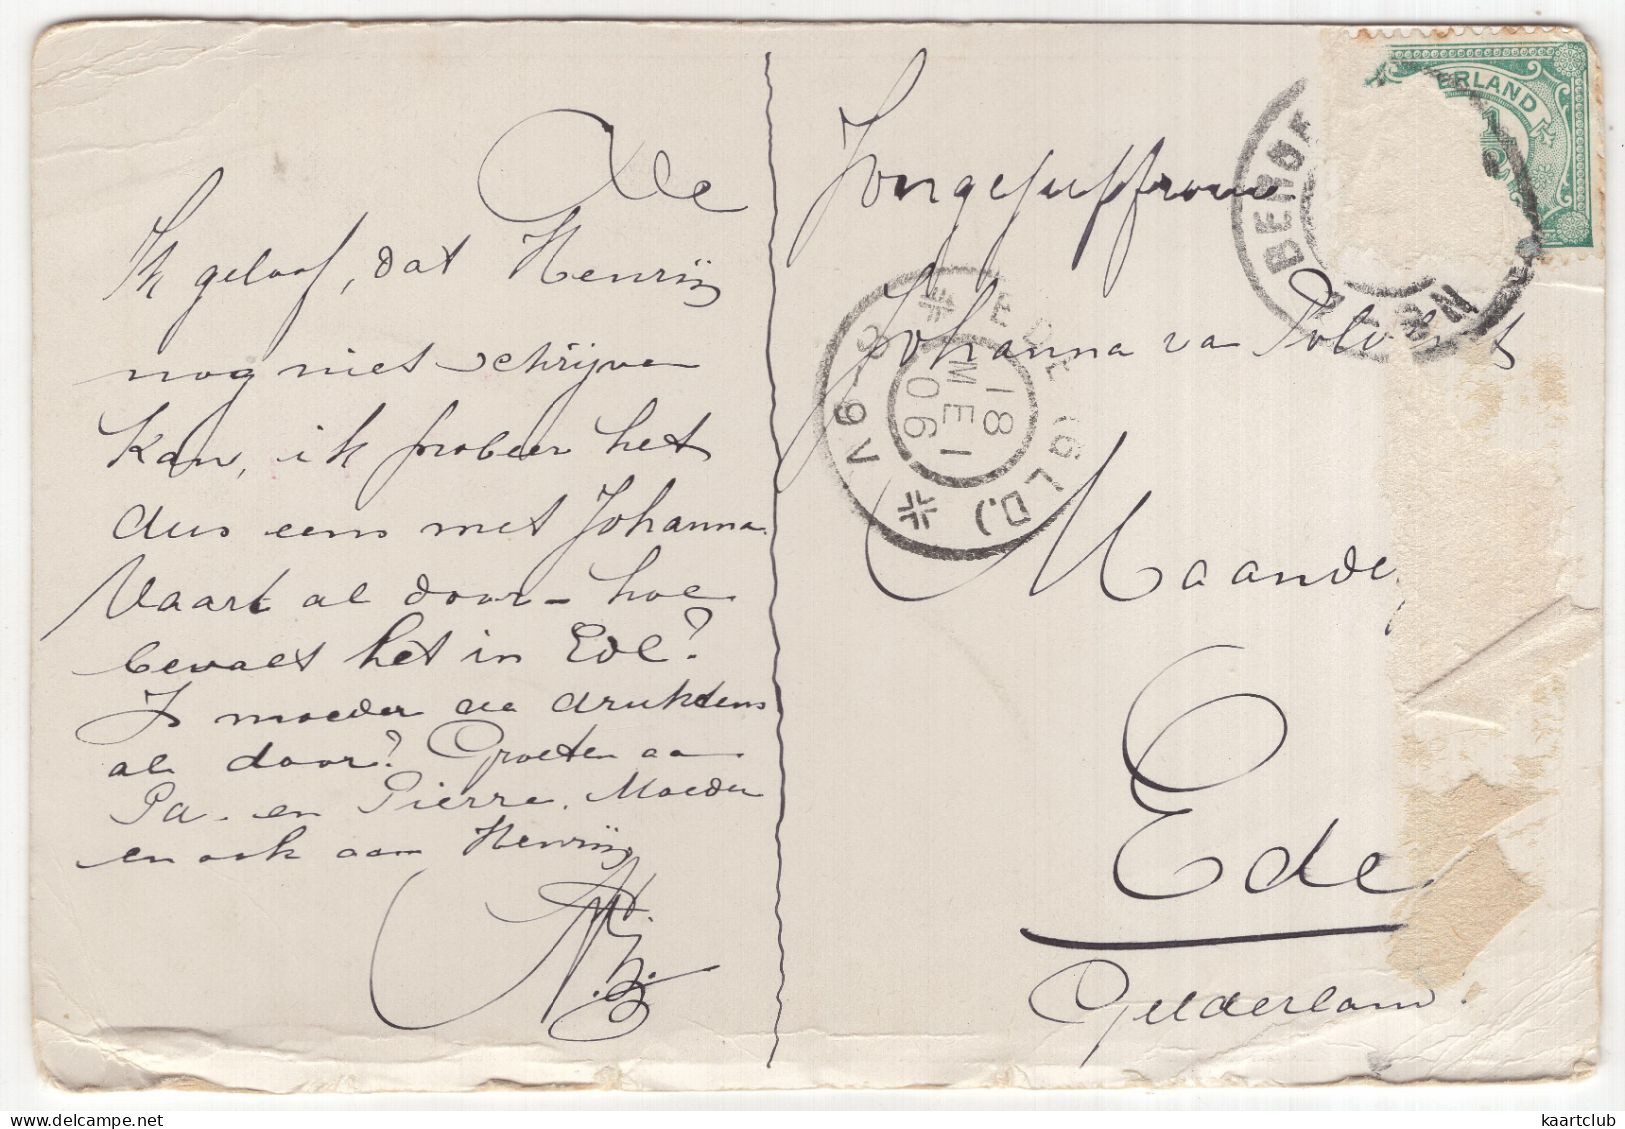 Ik geloof, dat Henrij
nog niet schrijven
kan, ik probeer het
dus eens met Johanna.
Vaart al door - hoe
bevalt het in Ede?
Is moeder de drukdens
al door? Groeten aan
Pa. en Pierre. Moeder
en ook aan Henrij
Jongejuffrouw
Johanna van
Ede
Gelderland.
EDE (GLD.)
18 MEI 06
6-9 V
BERGE
ERLAND
1/2
kaartclub